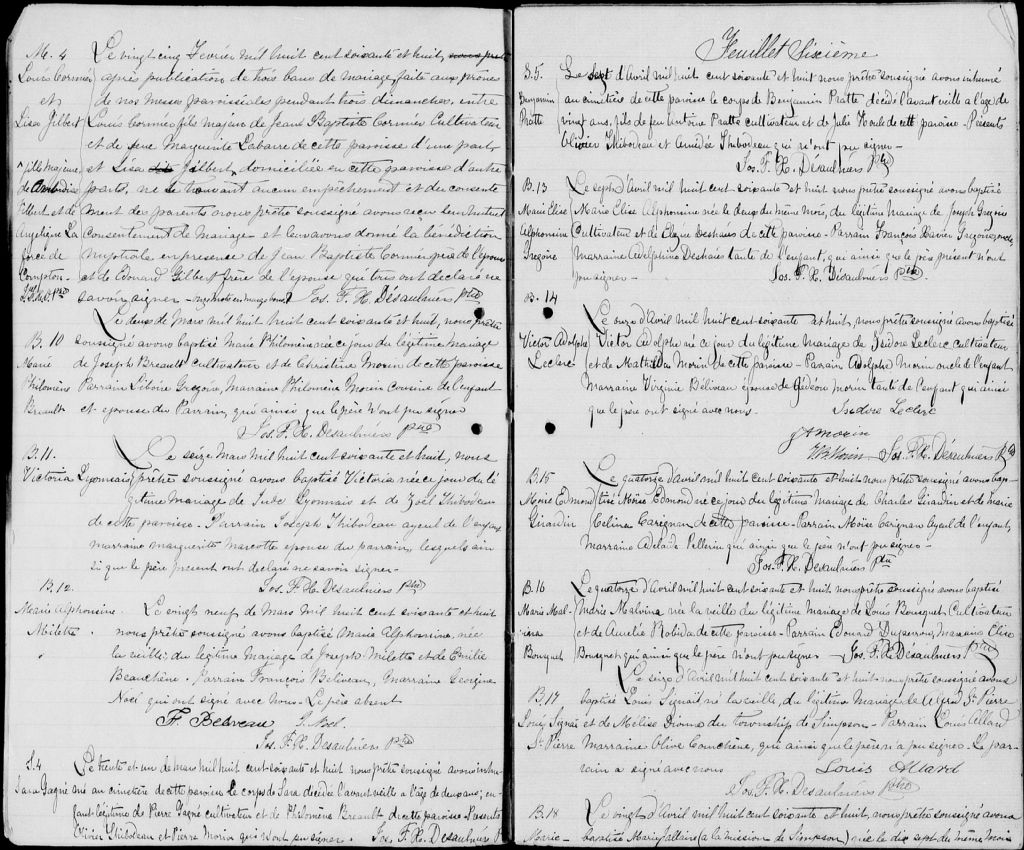 M. 4
Louis Cormier
et
Lisa Gilbert
fille majeure
de Ambroise
Gilbert et de
Angelique La
force de
Compton
J.F.H.D. Ptre
Le vingt cinq Fevrier mil huit cent soixante et huit,
après publication de trois bans de mariage faite aux prônes
de nos messes paroissiales pendant trois dimanches, entre
Louis Cormier fils majeur de Jean Baptiste Cormier Cultivateur
et de feue Marguerite Labarre de cette paroisse d'une part,
et Lisa Gilbert, domiciliée en cette paroisse d'autre
part, ne se trouvant aucun empêchement et du consente
ment des parents nous prêtre soussigné avons reçu leur mutuel
Consentement de Mariage et leur avons donné la bénédiction
nuptiale en presence de Jean Baptiste Cormier père de l'époux
et de Edouard Gilbert frère de l'épouse qui tous ont declaré ne
savoir signer - Jos. F. H. Désaulniers Ptre
B. 10
Marie
Philomène
Breault
Le deux de Mars mil huit cent soixante et huit, nous prêtre
soussigné avons baptisé Marie Philomène née ce jour du légitime mariage
de Joseph Breault cultivateur et de Christine Morin de cette paroisse
Parrain Grégoire, Marraine Philomène Morin Cousine de l'enfant
et epouse du Parrain, qui ainsi que le père n'ont pu signer
Jos. F. H. Desaulniers Ptre
B. 11.
Victoria Lyonnais
Le seize Mars mil huit cent soixante et huit, nous
prêtre soussigné avons baptisé Victoria née ce jour du lé
gitime mariage de Jude Lyonnais et de Zoël Thibodeau
de cette paroisse. Parrain Joseph Thibodeau ayeul de l'enfant
marraine marguerite Marcotte epouse du parrain, lesquels ain
si que le père present ont declaré ne savoir signer -
Jos. F. H. Desaulniers Ptre
B. 12.
Marie Alphonsine
Milette
Le vingt neuf de Mars mil huit cent soixante et huit
nous prêtre soussigné avons baptisé Marie Alphonsine, née
la veille, du legitime mariage de Joseph Milette et de Emilie
Beauchêne. Parrain François Beliveau, Marraine Georgine
Noël qui ont signé avec nous. Le père absent
F. Beliveau
Jos. F. H. Desaulniers Ptre
S. 4
Sara Gagné
Le trente et un de mars mil huit cent soixante et huit nous prêtre soussigné avons inhu
mé au cimetière de cette paroisse le corps de Sara decedée l'avant veille a l'age de deux ans, en
fant légitime de Pierre Gagné cultivateur et de Philomène Breault de cette paroisse Presents
Thibodeau et Pierre Morin qui n'ont pu signer. Jos. F. H. Desaulniers P
Feuillet Sixième
S. 5.
Benjamin
Pratte
Le sept d'Avril mil huit cent soixante et huit nous prêtre soussigné avons inhumé
au cimetière de cette paroisse le corps de Benjamin Pratte décédé l'avant veille a l'age de
vingt ans, fils de feu Antoine Pratte cultivateur et de Julie Houle de cette paroisse - Présents
Olivier Thibodeau et Amédée Thibodeau qui n'ont pu signer -
Jos. F. H. Désaulniers Ptre
B. 13
Marie Elise
Alphonsine
Gregoire
Le sept d'Avril mil huit cent soixante et huit nous prêtre soussigné avons baptisé
Marie Elise Alphonsine née le deux du même mois, du légitime mariage de Joseph Gregoire
Cultivateur et de Elzire Deshaies de cette paroisse - Parrain François Xavier Gregoire
Marraine Adelphine Deshaies tante de l'enfant, qui ainsi que le père présent n'ont
pu signer - Jos. F. H. Désaulniers Ptre.
B. 14
Victor Adolphe
Leclerc
Le onze d'Avril mil huit cent soixante et huit, nous prêtre soussigné avons baptisé
Victor Adolphe né ce jour du légitime mariage de Isidore Leclerc cultivateur
et de Mathilde Morin de cette paroisse - Parrain Adolphe Morin oncle de l'enfant
Marraine Virginie Béliveau épouse de Gédéon Morin tante de l'enfant qui ainsi
que le père ont signé avec nous. Isidore Leclerc
J A Morin
Jos. F. H. Désaulniers Ptre
B. 15
Moise Edmond
Girardin
Le quatorze d'Avril mil huit cent soixante et huit nous prêtre soussigné avons bap-
tisé Moise Edmond né ce jour du légitime mariage de Charles Girardin et de Marie
Celina Carignan de cette paroisse - Parrain Moise Carignan Ayeul de l'enfant,
Marraine Adelaïde Pellerin qui ainsi que le père n'ont pu signer -
Jos. F. H. Desaulniers Ptre
B. 16
Marie Mal-
vina
Bousquet
Le quatorze d'Avril mil huit cent soixante et huit nous prêtre soussigné avons baptisé
Marie Malvina née la veille du légitime Mariage de Louis Bousquet Cultivateur
et de Aurelie Robida de cette paroisse - Parrain Edouard Marraine Elise
Bousquet qui ainsi que le père n'ont pu signer - Jos. F. H. Désaulniers Ptre
B. 17
Louis Signaï
St. Pierre
Le seize d'Avril mil huit cent soixante et huit nous prêtre soussigné avons
baptisé Louis Signaï né la veille, du légitime mariage de Alfred St. Pierre
et de Mélise Dionne du township de Simpson - Parrain Louis Allard
Marraine Olive Couchène, qui ainsi que le père n'a pu signer. Le par-
rain a signé avec nous Louis Allard
Jos. F. H. Desaulniers Ptre
B. 18
Marie
Le vingt d'Avril mil huit cent soixante et huit, nous prêtre soussigné avons
baptisé Marie (a la mission de Simpson) née le dix sept du même mois